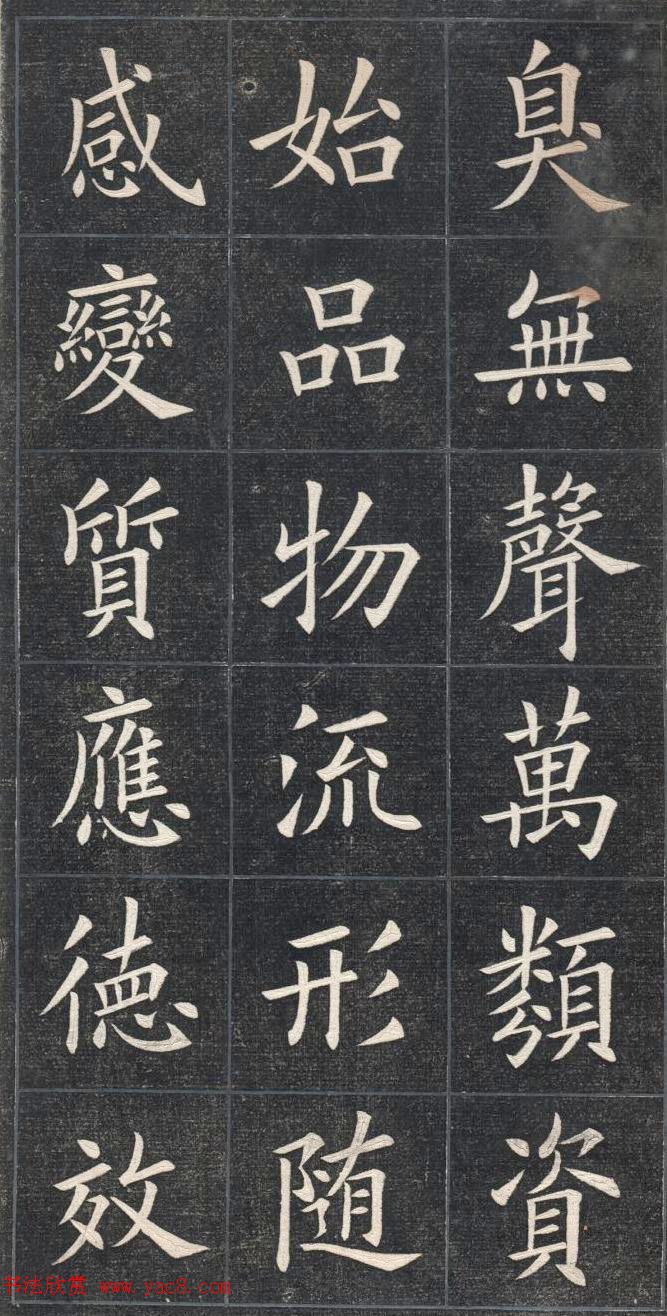 臭無聲萬類資
始品物流形随
感變質應德效
书法欣赏 www.yac8.com